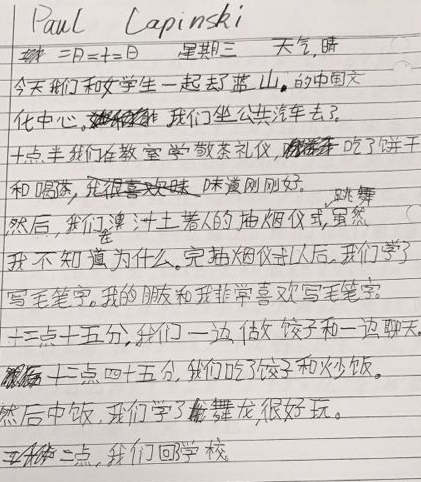 Paul Lapinski
二月二十二日 星期三 天气,晴
今天我们和女学生一起去了蓝山,的中国文
化中心。我们坐公共汽车去了。
十点半我们在教室学敬茶礼仪,吃了饼干
和喝茶,我很喜欢味 味道刚刚好。
跳舞
然后,我们在澳土著人的抽烟仪式,虽然
我不知道为什么。完抽烟仪式以后,我们学了
写毛笔字。我的朋友和我非常喜欢写毛笔字。
十二点十五分,我们一边做饺子和一边聊天。
十二点四十五分,我们吃了饺子和炒饭。
然后中饭,我们学了舞龙,很好玩。
二点,我们回学校